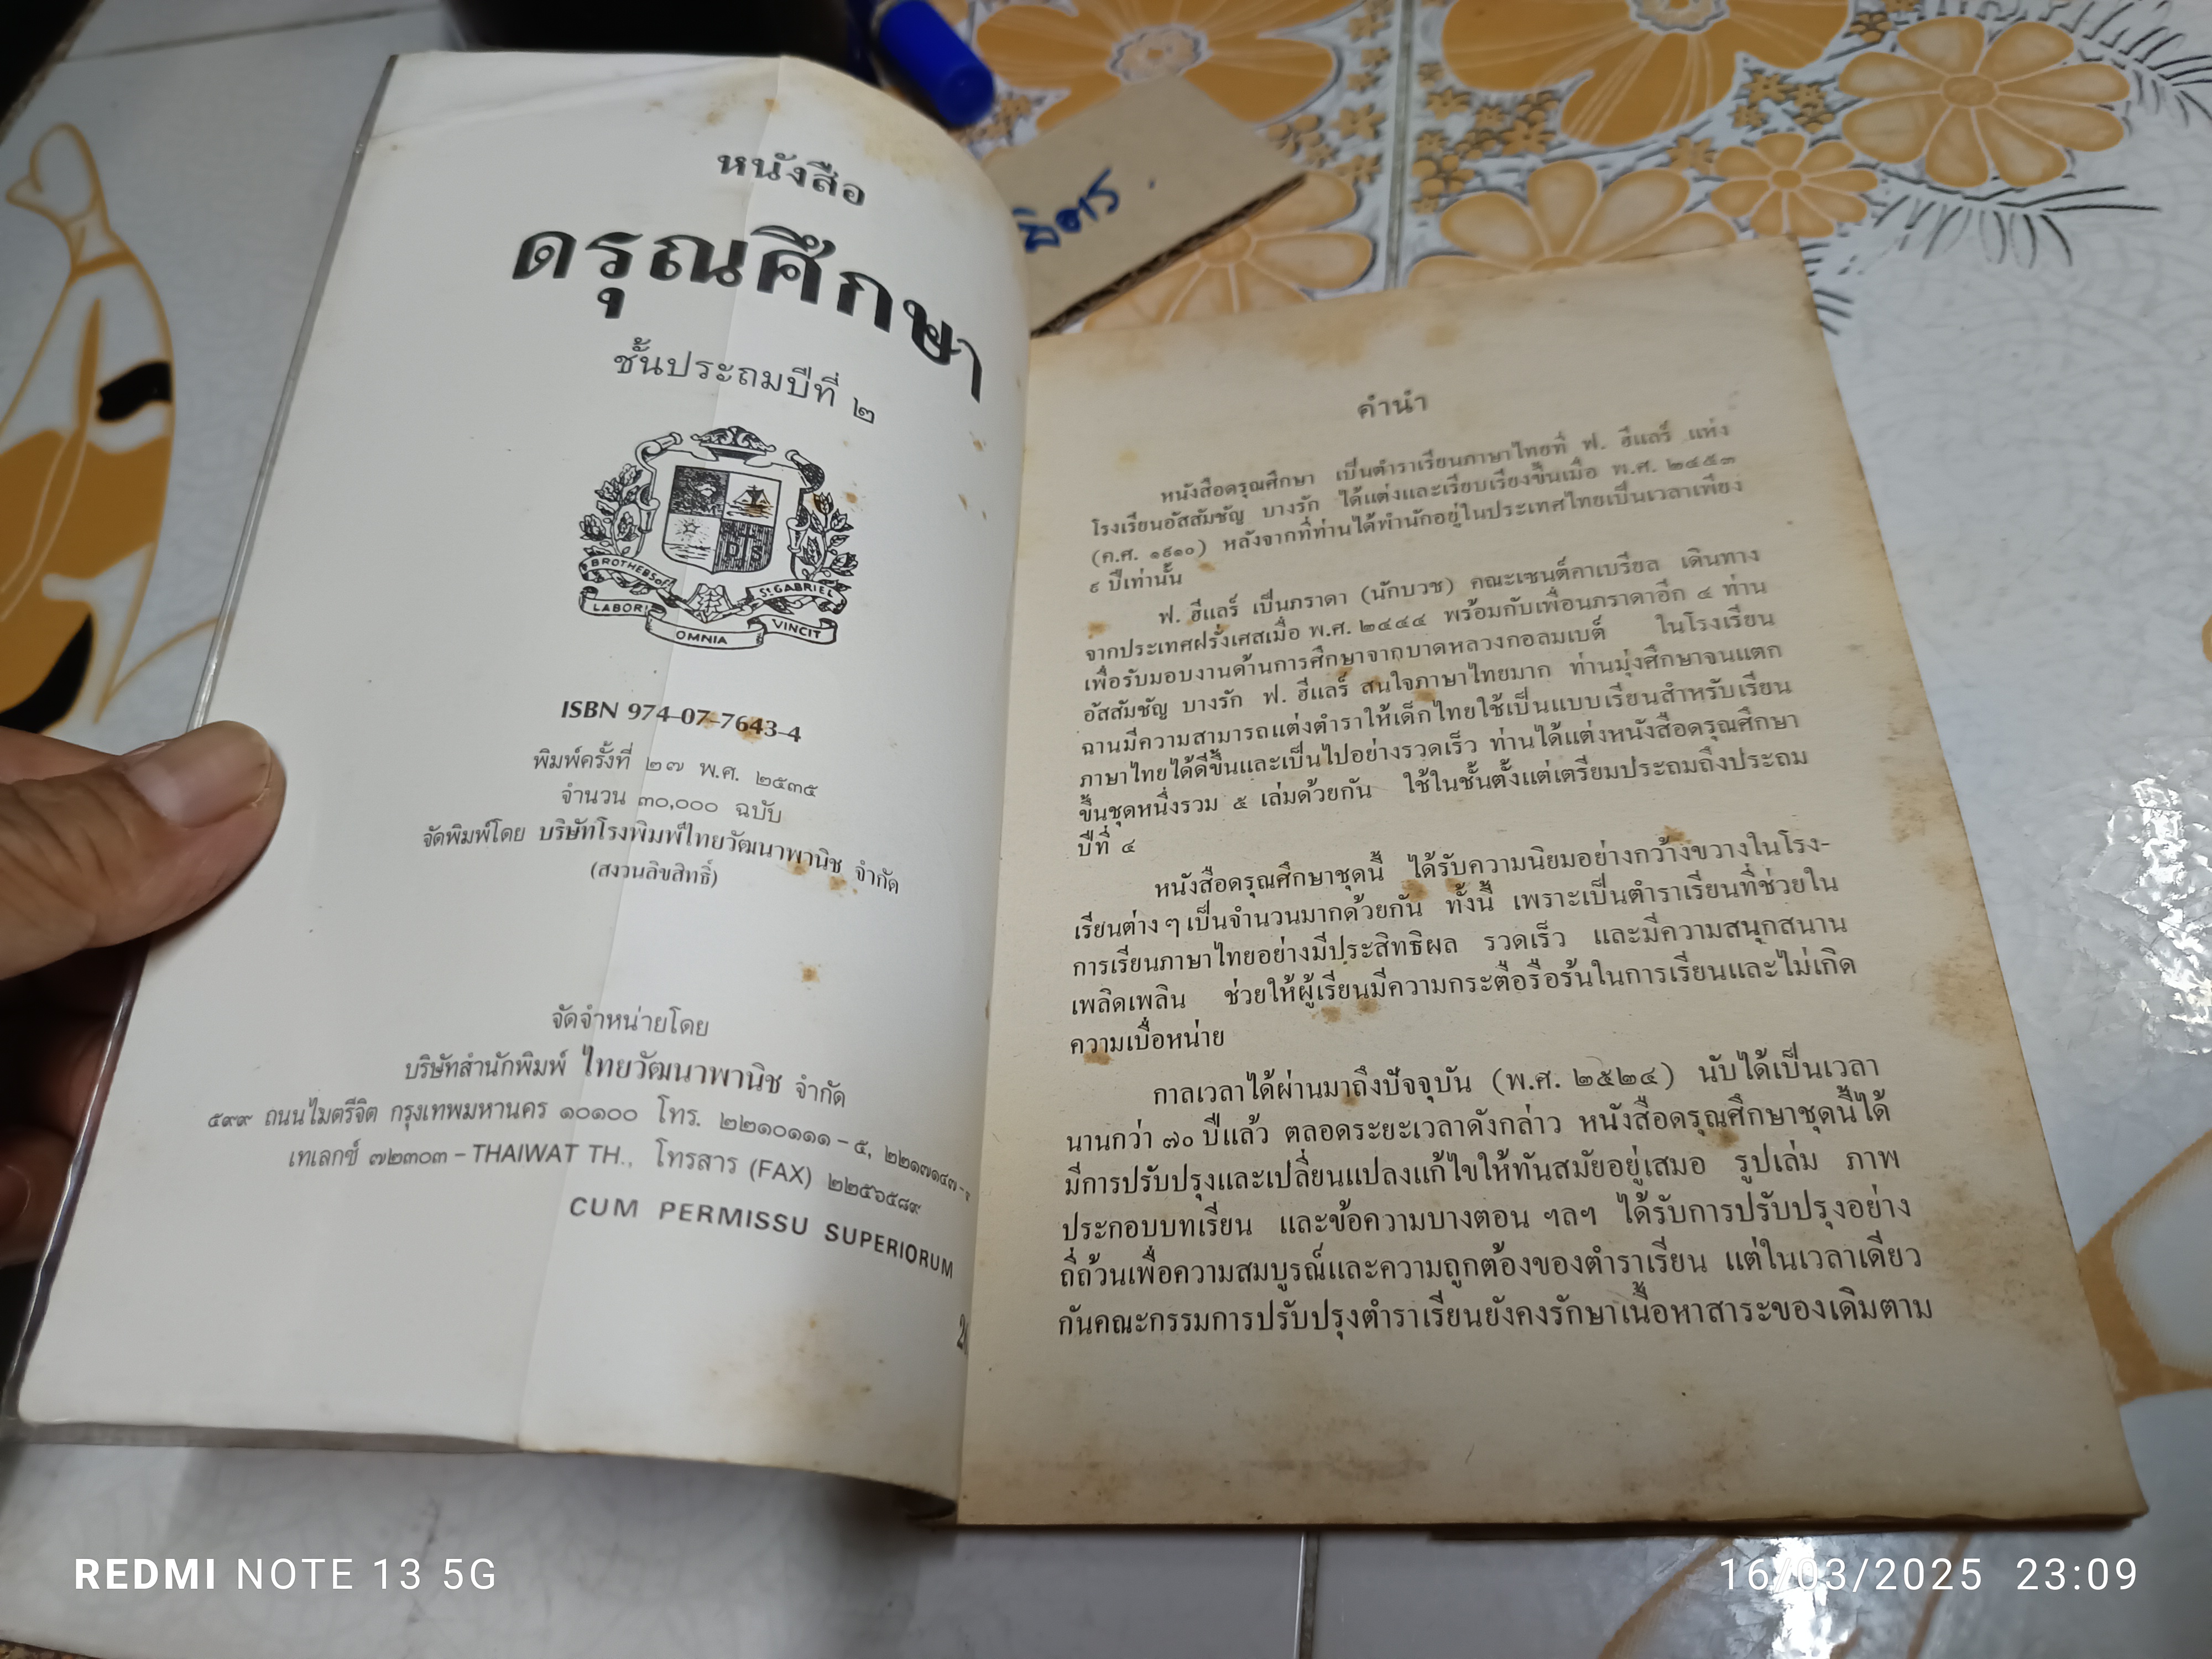 หนังสือ
ดรุณศึกษา
ชั้นประถมปีที่ ๒
BROTHERS of
St GABRIEL
LABOR
OMNIA
VINCIT
ISBN 974-07-7643-4
พิมพ์ครั้งที่ ๒๗ พ.ศ. ๒๕๓๕
จำนวน ๓๐,๐๐๐ ฉบับ
จัดพิมพ์โดย บริษัทโรงพิมพ์ไทยวัฒนาพานิช จำกัด
(สงวนลิขสิทธิ์)
จัดจำหน่ายโดย
บริษัทสำนักพิมพ์ ไทยวัฒนาพานิช จำกัด
๕๙๙ ถนนไมตรีจิต กรุงเทพมหานคร ๑๐๑๐๐ โทร. ๒๒๑๐๑๑๑ – ๕, ๒๒๑๗๑๔๗ –
เทเลกซ์ ๗๒๓๐๓ – THAIWAT TH., โทรสาร (FAX) ๒๒๕๖๕๘๙
CUM PERMISSU SUPERIORUM
คำนำ
หนังสือดรุณศึกษา เป็นตำราเรียนภาษาไทยที่ ฟ. ฮีแลร์ แห่ง
โรงเรียนอัสสัมชัญ บางรัก ได้แต่งและเรียบเรียงขึ้นเมื่อ พ.ศ. ๒๔๕๓
(ค.ศ. ๑๙๑๐) หลังจากที่ท่านได้พำนักอยู่ในประเทศไทยเป็นเวลาเพียง
๙ ปีเท่านั้น
ฟ. ฮีแลร์ เป็นภราดา (นักบวช) คณะเซนต์คาเบรียล เดินทาง
จากประเทศฝรั่งเศสเมื่อ พ.ศ. ๒๔๔๔ พร้อมกับเพื่อนภราดาอีก ๔ ท่าน
เพื่อรับมอบงานด้านการศึกษาจากบาดหลวงกอลมเบต์ ในโรงเรียน
อัสสัมชัญ บางรัก ฟ. ฮีแลร์ สนใจภาษาไทยมาก ท่านมุ่งศึกษาจนแตก
ฉานมีความสามารถแต่งตำราให้เด็กไทยใช้เป็นแบบเรียนสำหรับเรียน
ภาษาไทยได้ดีขึ้นและเป็นไปอย่างรวดเร็ว ท่านได้แต่งหนังสือดรุณศึกษา
ขึ้นชุดหนึ่งรวม ๕ เล่มด้วยกัน ใช้ในชั้นตั้งแต่เตรียมประถมถึงประถม
ปีที่ ๔
หนังสือดรุณศึกษาชุดนี้ ได้รับความนิยมอย่างกว้างขวางในโรง-
เรียนต่าง ๆ เป็นจำนวนมากด้วยกัน ทั้งนี้ เพราะเป็นตำราเรียนที่ช่วยใน
การเรียนภาษาไทยอย่างมีประสิทธิผล รวดเร็ว และมีความสนุกสนาน
เพลิดเพลิน ช่วยให้ผู้เรียนมีความกระตือรือร้นในการเรียนและไม่เกิด
ความเบื่อหน่าย
กาลเวลาได้ผ่านมาถึงปัจจุบัน (พ.ศ. ๒๕๒๔) นับได้เป็นเวลา
นานกว่า ๗๐ ปีแล้ว ตลอดระยะเวลาดังกล่าว หนังสือดรุณศึกษาชุดนี้ได้
มีการปรับปรุงและเปลี่ยนแปลงแก้ไขให้ทันสมัยอยู่เสมอ รูปเล่ม ภาพ
ประกอบบทเรียน และข้อความบางตอน ฯลฯ ได้รับการปรับปรุงอย่าง
ถี่ถ้วนเพื่อความสมบูรณ์และความถูกต้องของตำราเรียน แต่ในเวลาเดียว
กันคณะกรรมการปรับปรุงตำราเรียนยังคงรักษาเนื้อหาสาระของเดิมตาม
REDMI NOTE 13 5G
16/03/2025 23:09